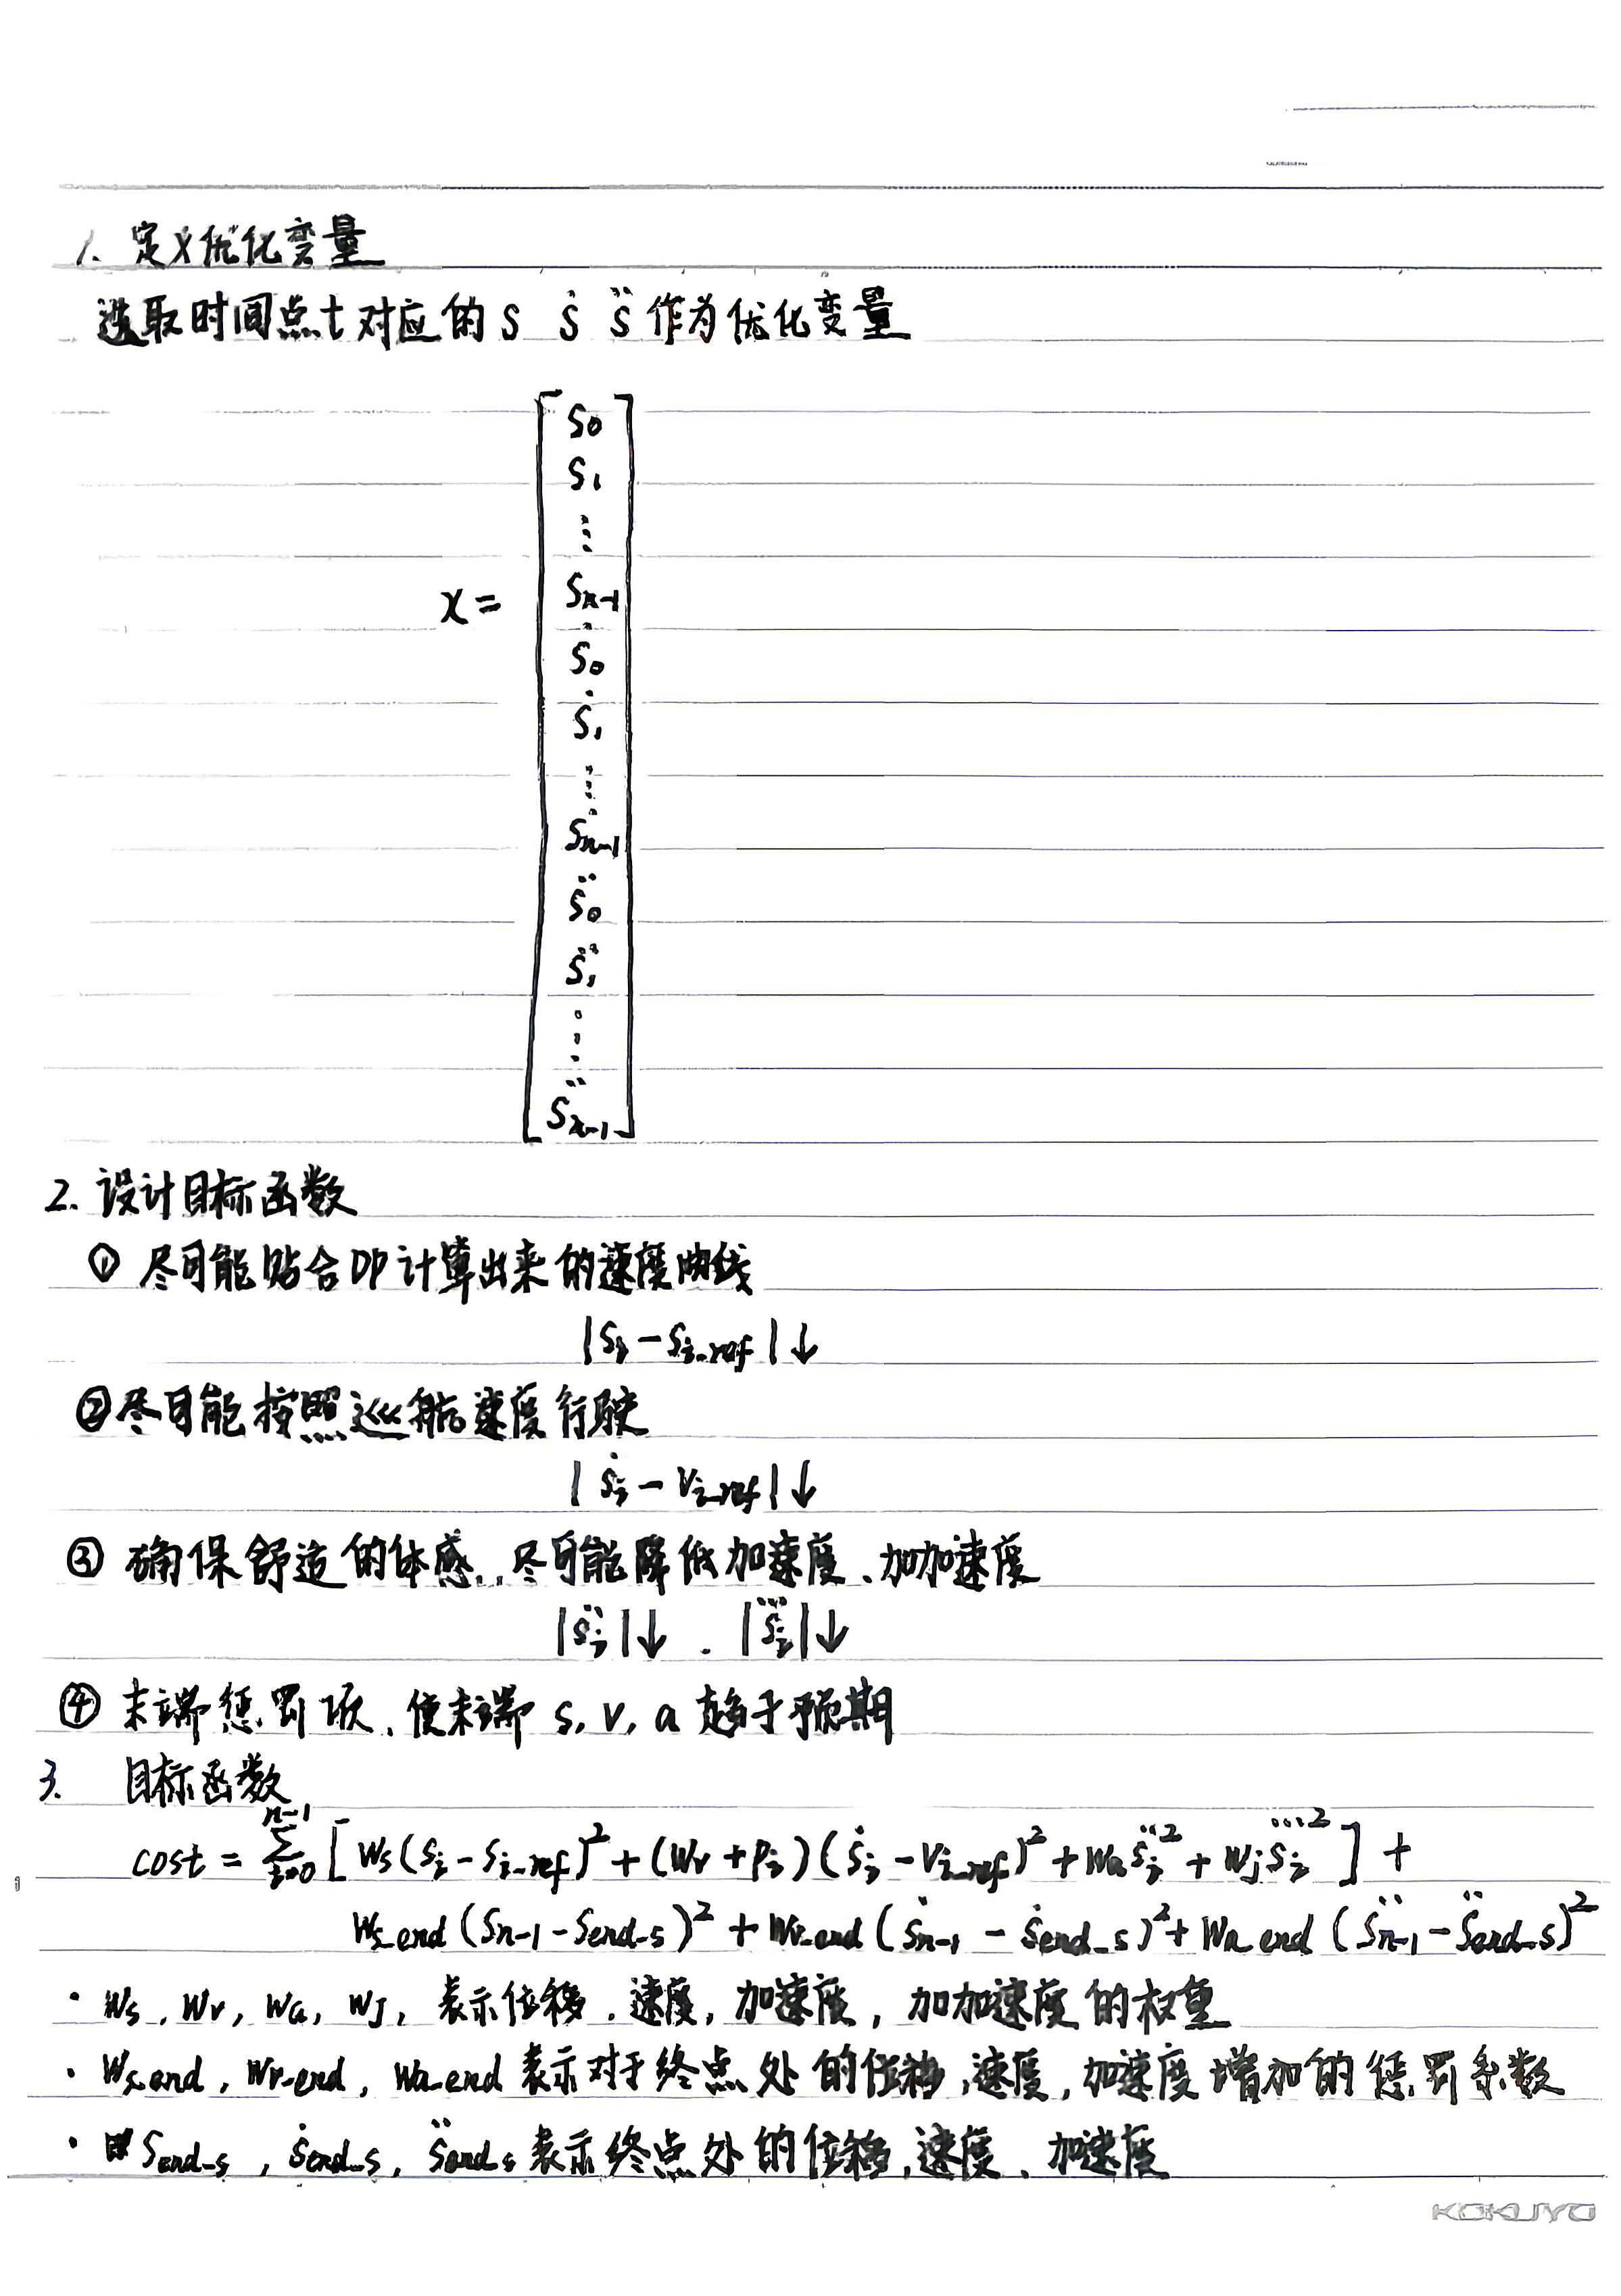 1. 定义优化变量
选取时间点t对应的 s ṡ s̈ 作为优化变量
x = [
s₀
s₁
⋮
sₙ₋₁
ṡ₀
ṡ₁
⋮
ṡₙ₋₁
s̈₀
s̈₁
⋮
s̈ₙ₋₁
]
2. 设计目标函数
① 尽可能贴合DP计算出来的速度曲线
|sᵢ - sᵢ_ref|↓
② 尽可能按照巡航速度行驶
|ṡᵢ - vᵢ_ref|↓
③ 确保舒适的体感, 尽可能降低加速度、加加速度
|s̈ᵢ|↓ . |s⃛ᵢ|↓
④ 末端惩罚项、使末端 s, v, a 趋于预期
3. 目标函数
cost = Σᵢ₌₀ⁿ⁻¹ [ Ws(sᵢ - sᵢ_ref)² + (Wv + pᵢ)(ṡᵢ - vᵢ_ref)² + Wa s̈ᵢ² + Wj s⃛ᵢ² ] +
Ws_end (sₙ₋₁ - send_s)² + Wv_end (ṡₙ₋₁ - ṡend_s)² + Wa_end (s̈ₙ₋₁ - s̈end_s)²
· Ws, Wv, Wa, Wj, 表示位移、速度, 加速度, 加加速度的权重
· Ws_end, Wv_end, Wa_end 表示对于终点处的位移, 速度, 加速度增加的惩罚系数
· send_s, ṡend_s, s̈end_s 表示终点处的位移, 速度、加速度
KOKUYO